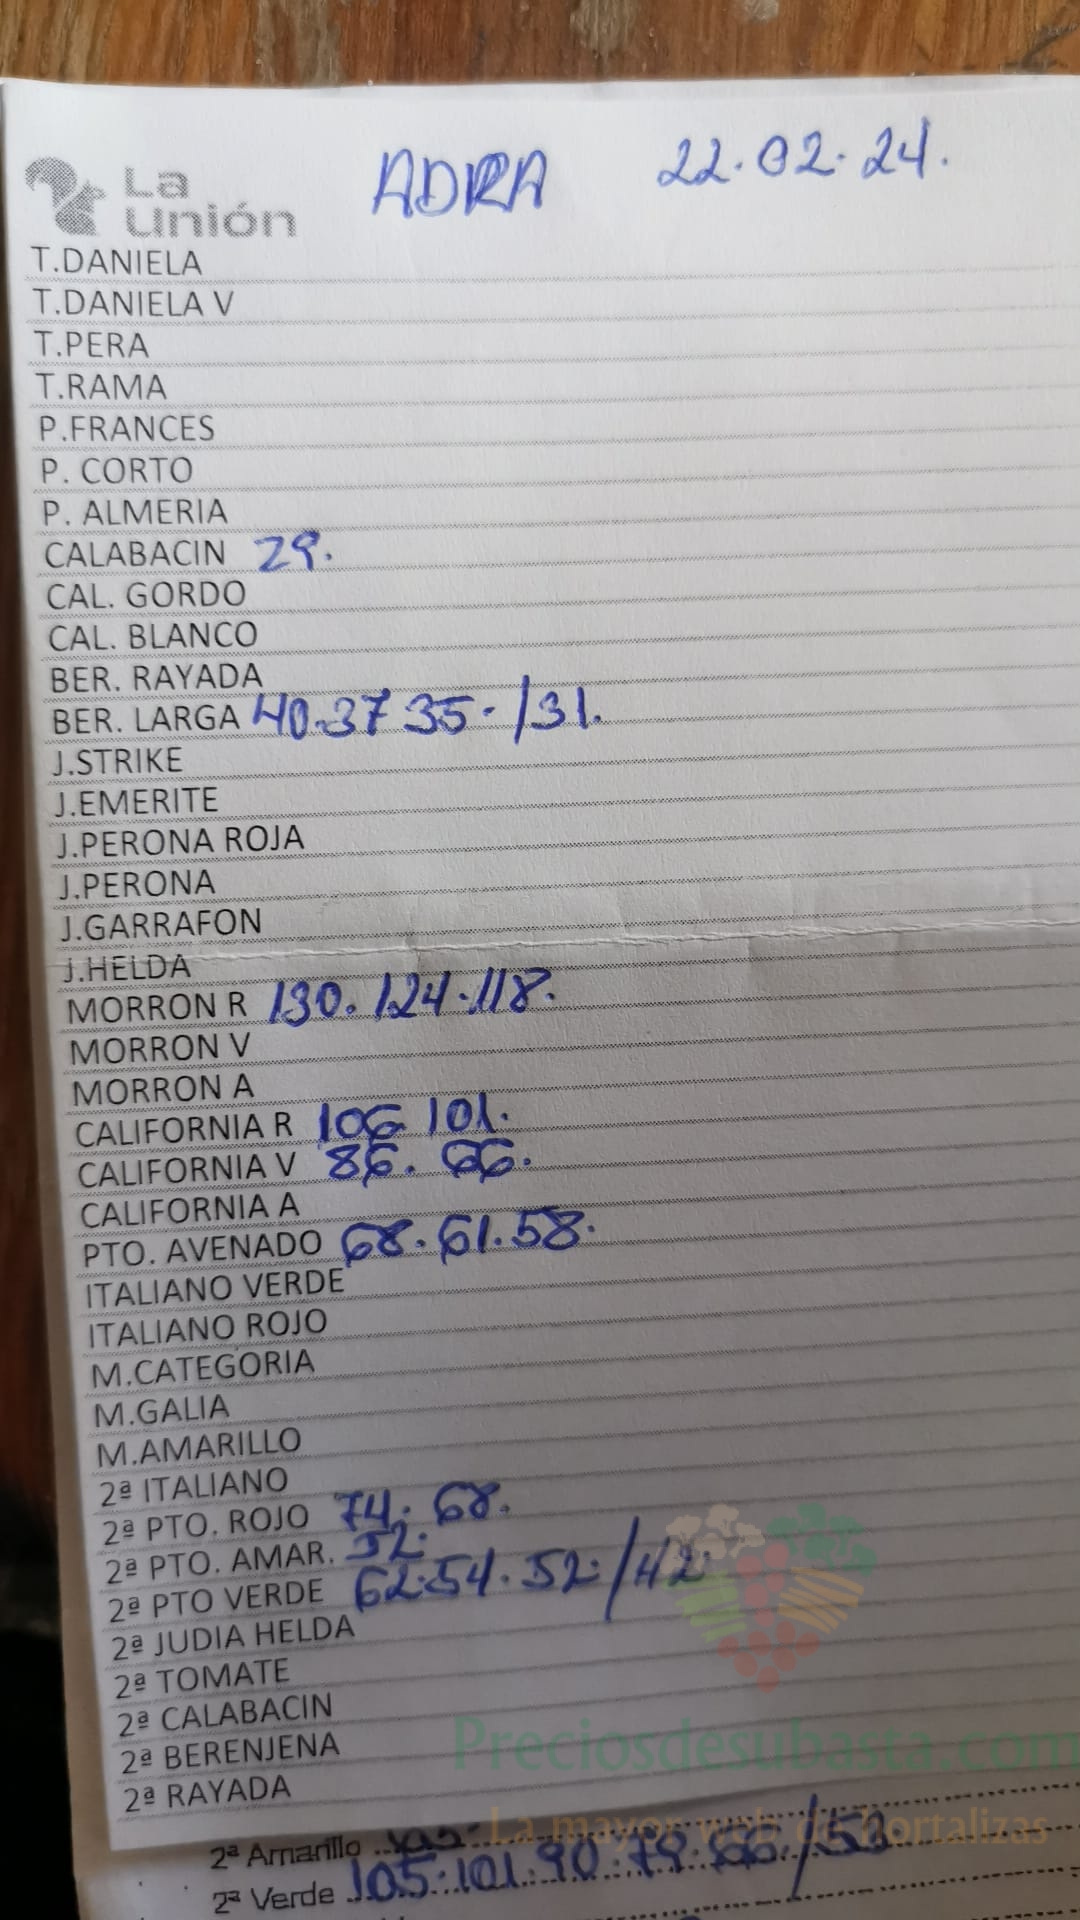 La Unión ADRA 22.02.24.
T.DANIELA
T.DANIELA V
T.PERA
T.RAMA
P.FRANCES
P. CORTO
P. ALMERIA
CALABACIN 29.
CAL. GORDO
CAL. BLANCO
BER. RAYADA
BER. LARGA 40.37 35./31.
J.STRIKE
J.EMERITE
J.PERONA ROJA
J.PERONA
J.GARRAFON
J.HELDA
MORRON R 130.124.118.
MORRON V
MORRON A
CALIFORNIA R 106 101.
CALIFORNIA V 86. 66.
CALIFORNIA A
PTO. AVENADO 68.61.58.
ITALIANO VERDE
ITALIANO ROJO
M.CATEGORIA
M.GALIA
M.AMARILLO
2ª ITALIANO
2ª PTO. ROJO 74. 68.
2ª PTO. AMAR. 52.
2ª PTO VERDE 62.54.52./42
2ª JUDIA HELDA
2ª TOMATE
2ª CALABACIN
2ª BERENJENA
2ª RAYADA
Preciosdesubasta.com
La mayor web de hortalizas
2ª Amarillo
2ª Verde 105.101.90.79.